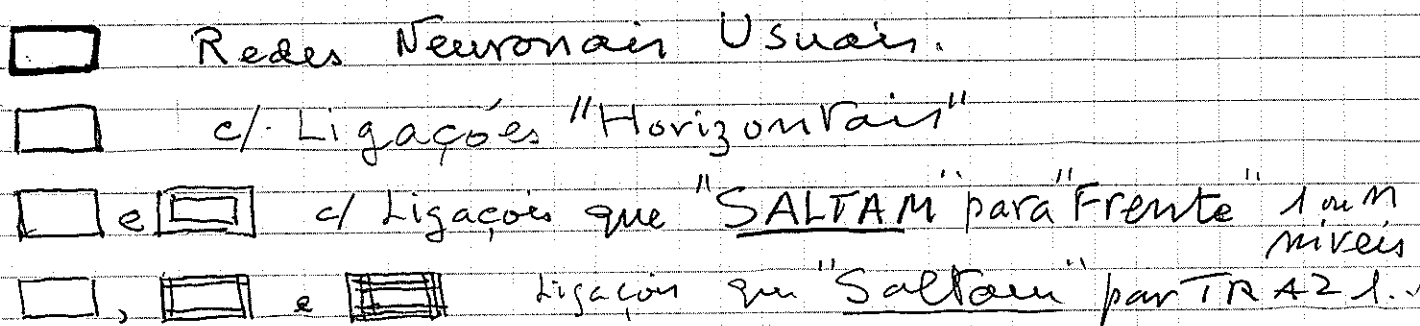 Redes Neuronais Usuais.
c/. Ligações "Horizontais"
e c/ Ligações que "SALTAM" para "Frente" 1 ou n
níveis
, e Ligações que "Saltam" par TRAZ 1.